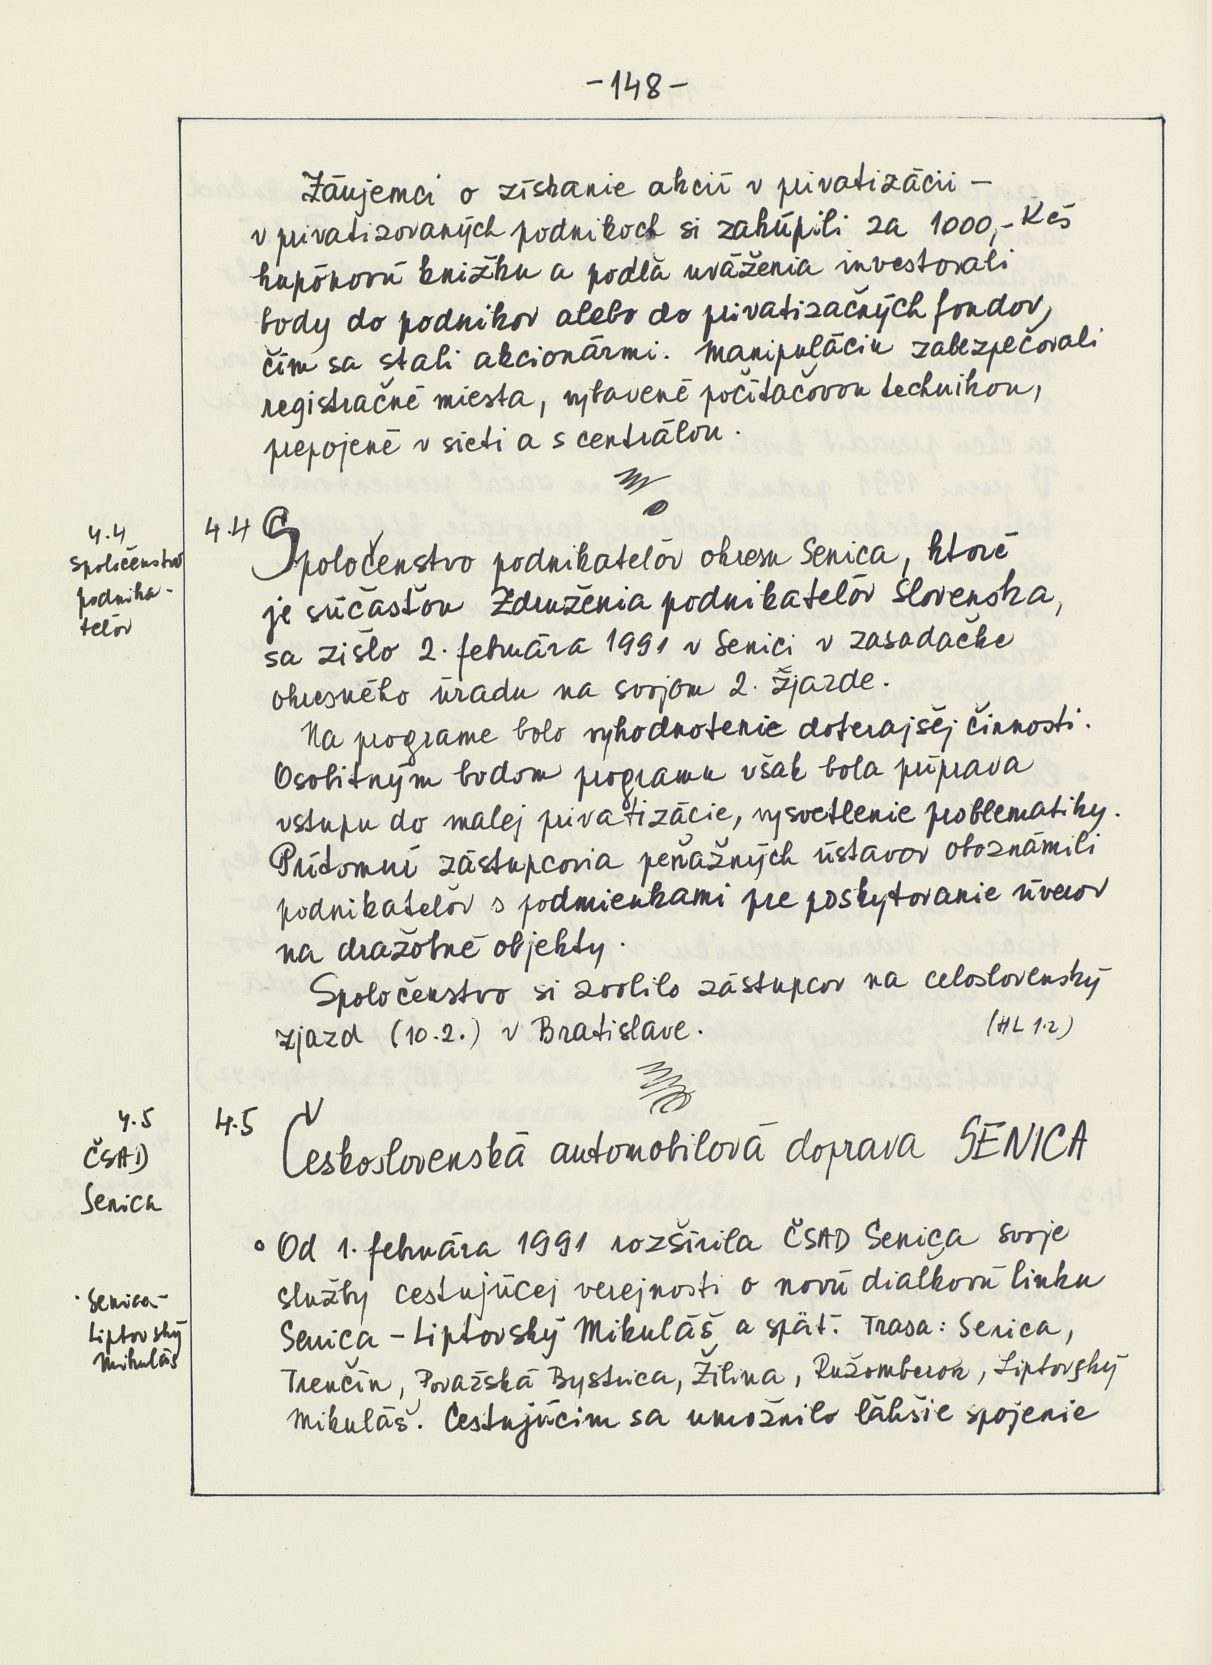 -148-
Záujemci o získanie akcií v privatizácii -
v privatizovaných podnikoch si zakúpili za 1000,- Kčs
kupónovú knižku a podľa uváženia investovali
body do podnikov alebo do privatizačných fondov,
čím sa stali akcionármi. Manipuláciu zabezpečovali
registračné miesta, vybavené počítačovou technikou,
prepojené v sieti a s centrálou.
4.4
Spoločenstvo
podnika-
teľov
4.4 Spoločenstvo podnikateľov okresu Senica, ktoré
je súčasťou Združenia podnikateľov Slovenska,
sa zišlo 2. februára 1991 v Senici v zasadačke
okresného úradu na svojom 2. zjazde.
Na programe bolo vyhodnotenie doterajšej činnosti.
Osobitným bodom programu však bola príprava
vstupu do malej privatizácie, vysvetlenie problematiky.
Prítomní zástupcovia peňažných ústavov oboznámili
podnikateľov s podmienkami pre poskytovanie úverov
na dražobné objekty.
Spoločenstvo si zvolilo zástupcov na celoslovenský
zjazd (10.2.) v Bratislave. (HL 1.2)
4.5
ČSAD
Senica
4.5 Československá automobilová doprava SENICA
Od 1. februára 1991 rozšírila ČSAD Senica svoje
služby cestujúcej verejnosti o novú diaľkovú linku
Senica - Liptovský Mikuláš a späť. Trasa: Senica,
Trenčín, Považská Bystrica, Žilina, Ružomberok, Liptovský
Mikuláš. Cestujúcim sa umožnilo ľahšie spojenie
Senica-
Liptovský
Mikuláš